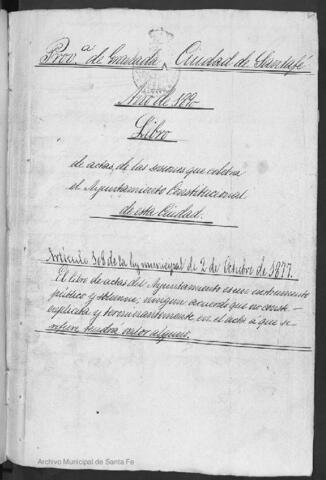 Prov.ª de Granada Ciudad de Santafé
Año de 189
Libro
de actas, de las sesiones que celebra
el Ayuntamiento Constitucional
de esta Ciudad.
Artículo 108 de la ley municipal de 2 de Octubre de 1877.
El libro de actas del Ayuntamiento es un instrumento
público y solemne, ningun acuerdo que no conste
explicita y terminantemente en el acta á que se
refiere tendra valor alguno.
Archivo Municipal de Santa Fe